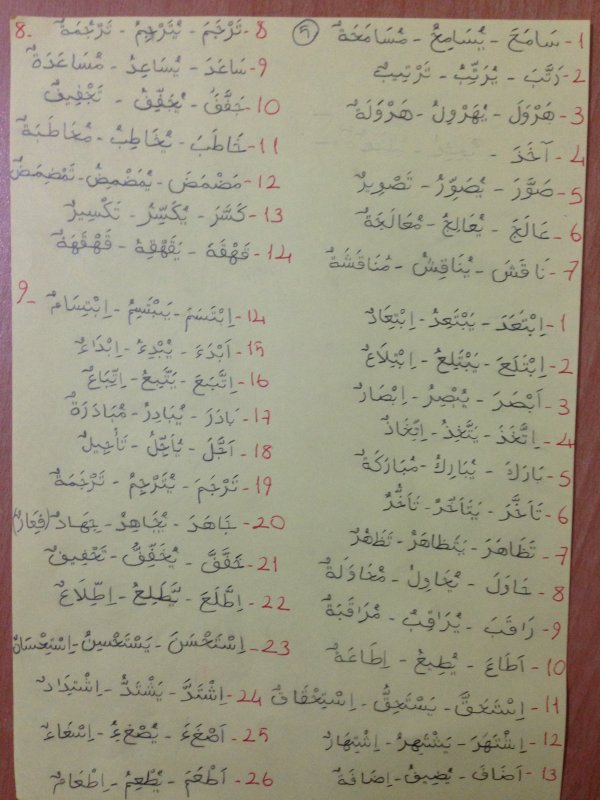 1- سَامَحَ - يُسَامِحُ - مُسَامَحَةٌ
2- رَتَّبَ - يُرَتِّبُ - تَرْتِيبٌ
3- هَرْوَلَ - يُهَرْوِلُ - هَرْوَلَةٌ
4- آخَذَ -
5- صَوَّرَ - يُصَوِّرُ - تَصْوِيرٌ
6- عَالَجَ - يُعَالِجُ - مُعَالَجَةٌ
7- نَاقَشَ - يُنَاقِشُ - مُنَاقَشَةٌ
8.
8- تَرْجَمَ - يُتَرْجِمُ - تَرْجَمَةٌ
9- سَاعَدَ - يُسَاعِدُ - مُسَاعَدَةٌ
10- خَفَّفَ - يُخَفِّفُ - تَخْفِيفٌ
11- خَاطَبَ - يُخَاطِبُ - مُخَاطَبَةٌ
12- مَضْمَضَ - يُمَضْمِضُ - تَمْضِمَضٌ
13- كَسَّرَ - يُكَسِّرُ - تَكْسِيرٌ
14- قَهْقَهَ - يُقَهْقِهُ - قَهْقَهَةٌ
1- اِبْتَعَدَ - يَبْتَعِدُ - اِبْتِعَادٌ
2- اِبْتَلَعَ - يَبْتَلِعُ - اِبْتِلَاعٌ
3- اَبْصَرَ - يُبْصِرُ - اِبْصَارٌ
4- اِتَّخَذَ - يَتَّخِذُ - اِتِّخَاذٌ
5- بَارَكَ - يُبَارِكُ - مُبَارَكَةٌ
6- تَاَخَّرَ - يَتَاَخَّرُ - تَاَخُّرٌ
7- تَظَاهَرَ - يَتَظَاهَرُ - تَظَهُرٌ
8- حَاوَلَ - يُحَاوِلُ - مُحَاوَلَةٌ
9- رَاقَبَ - يُرَاقِبُ - مُرَاقَبَةٌ
10- اَطَاعَ - يُطِيعُ - اِطَاعَةٌ
11- اِسْتَحَقَّ - يَسْتَحِقُّ - اِسْتِحْقَاقٌ
12- اِشْتَهَرَ - يَشْتَهِرُ - اِشْتِهَارٌ
13- اَضَافَ - يُضِيفُ - اِضَافَةٌ
9_
14- اِبْتَسَمَ - يَبْتَسِمُ - اِبْتِسَامٌ
15- اَبْدَءَ - يُبْدِءُ - اِبْدَاءٌ
16- اِتَّبَعَ - يَتَّبِعُ - اِتِّبَاعٌ
17- بَادَرَ - يُبَادِرُ - مُبَادَرَةٌ
18- اَجَّلَ - يُاَجِّلُ - تَأجِيلٌ
19- تَرْجَمَ - يُتَرْجِمُ - تَرْجَمَةٌ
20- جَاهَدَ - يُجَاهِدُ - جِهَادٌ (فِعَالٌ)
21- خَفَّقَ - يُخَفِّقُ - تَحْفِيقٌ
22- اِطَّلَعَ - يَطَّلِعُ - اِطِّلَاعٌ
23- اِسْتَحْسَنَ - يَسْتَحْسِنُ - اِسْتِحْسَانٌ
24- اِشْتَدَّ - يَشْتَدُّ - اِشْتِدَادٌ
25- اَصْغَءَ - يُصْغِءُ - اِسْغَاءٌ
26- اَطْعَمَ - يُطْعِمُ - اِطْعَامٌ